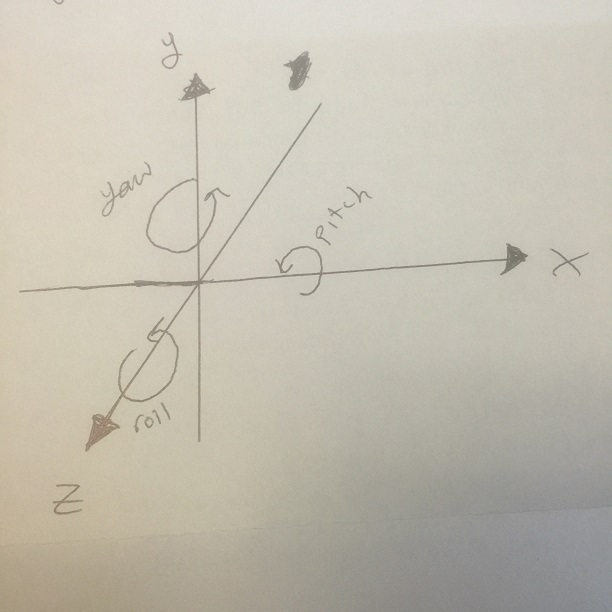 y
yaw
Pitch
X
roll
Z